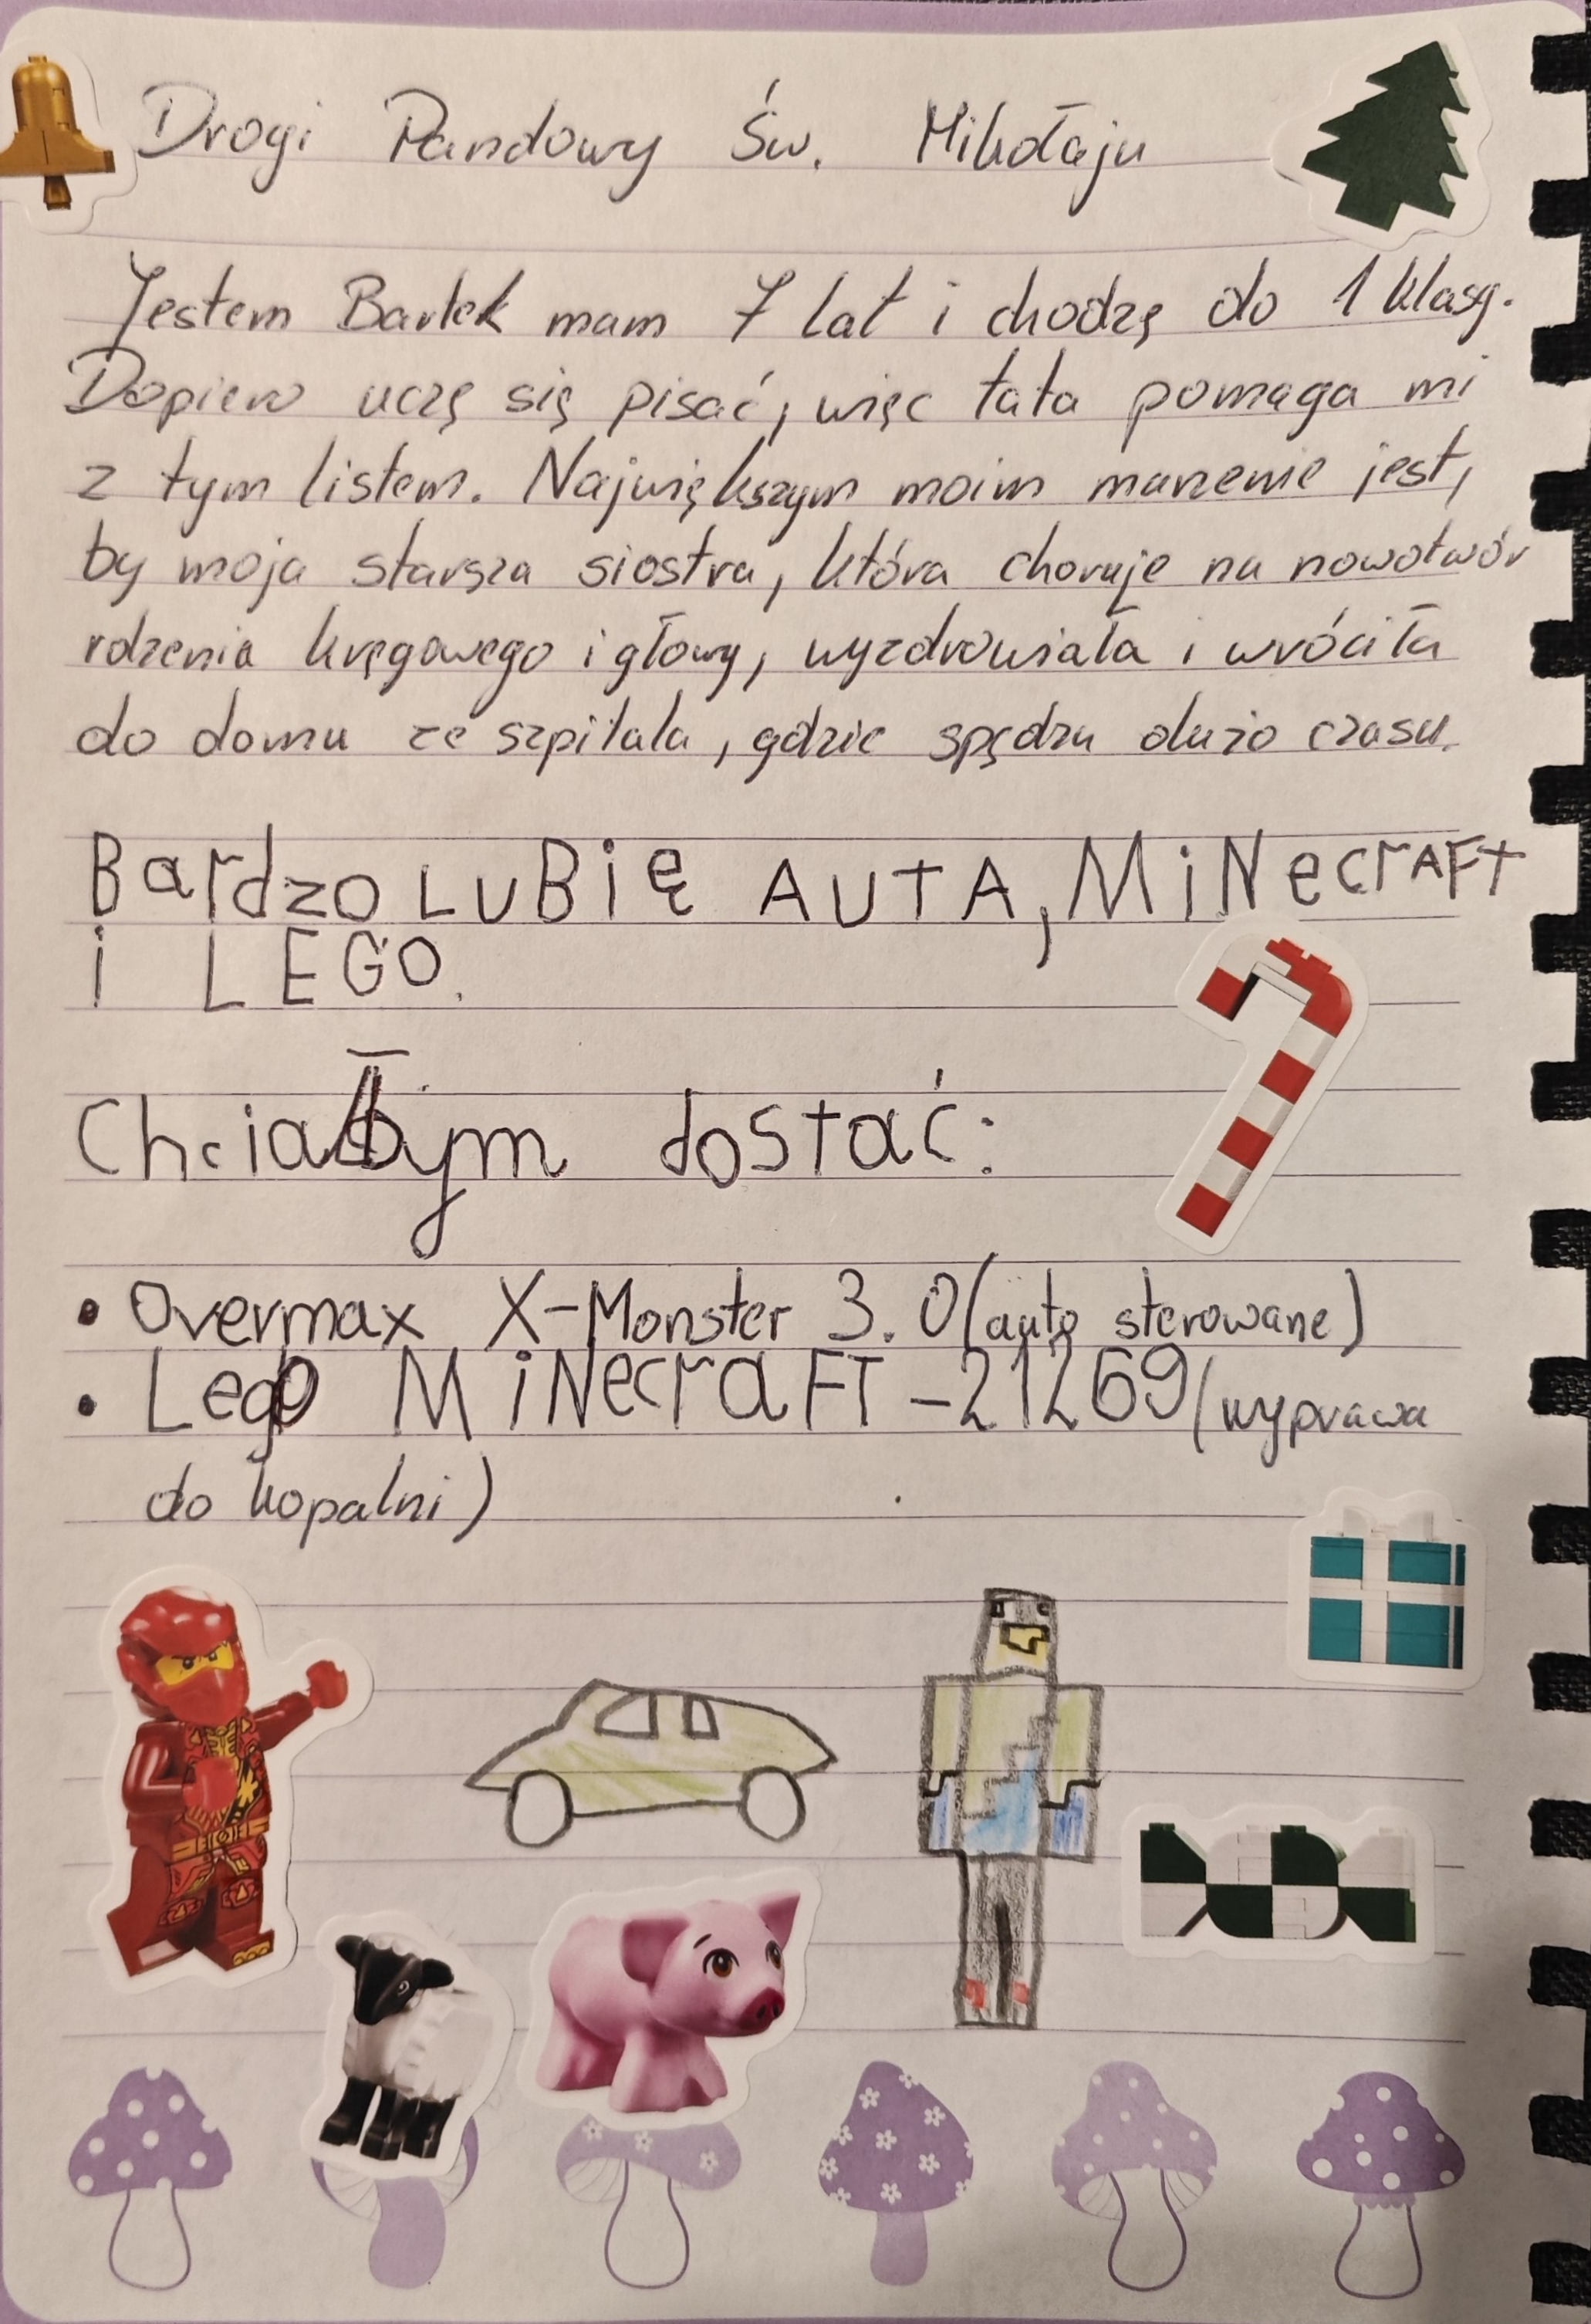 Drogi Pandowy Św. Mikołaju
Jestem Bartek mam 7 lat i chodzę do 1 klasy.
Dopiero uczę się pisać, więc tata pomaga mi
z tym listem. Największym moim marzenie jest,
by moja starsza siostra, która choruje na nowotwór
rdzenia kręgowego i głowy, wyzdrowiała i wróciła
do domu ze szpitala, gdzie spędza dużo czasu.
Bardzo LUBię AUTA, MiNecrAFT
i LEGO.
Chciałbym dostać:
• Overmax X-Monster 3.0 (auto sterowane)
• Lego MiNecraFT - 21269 (wyprawa
do kopalni)